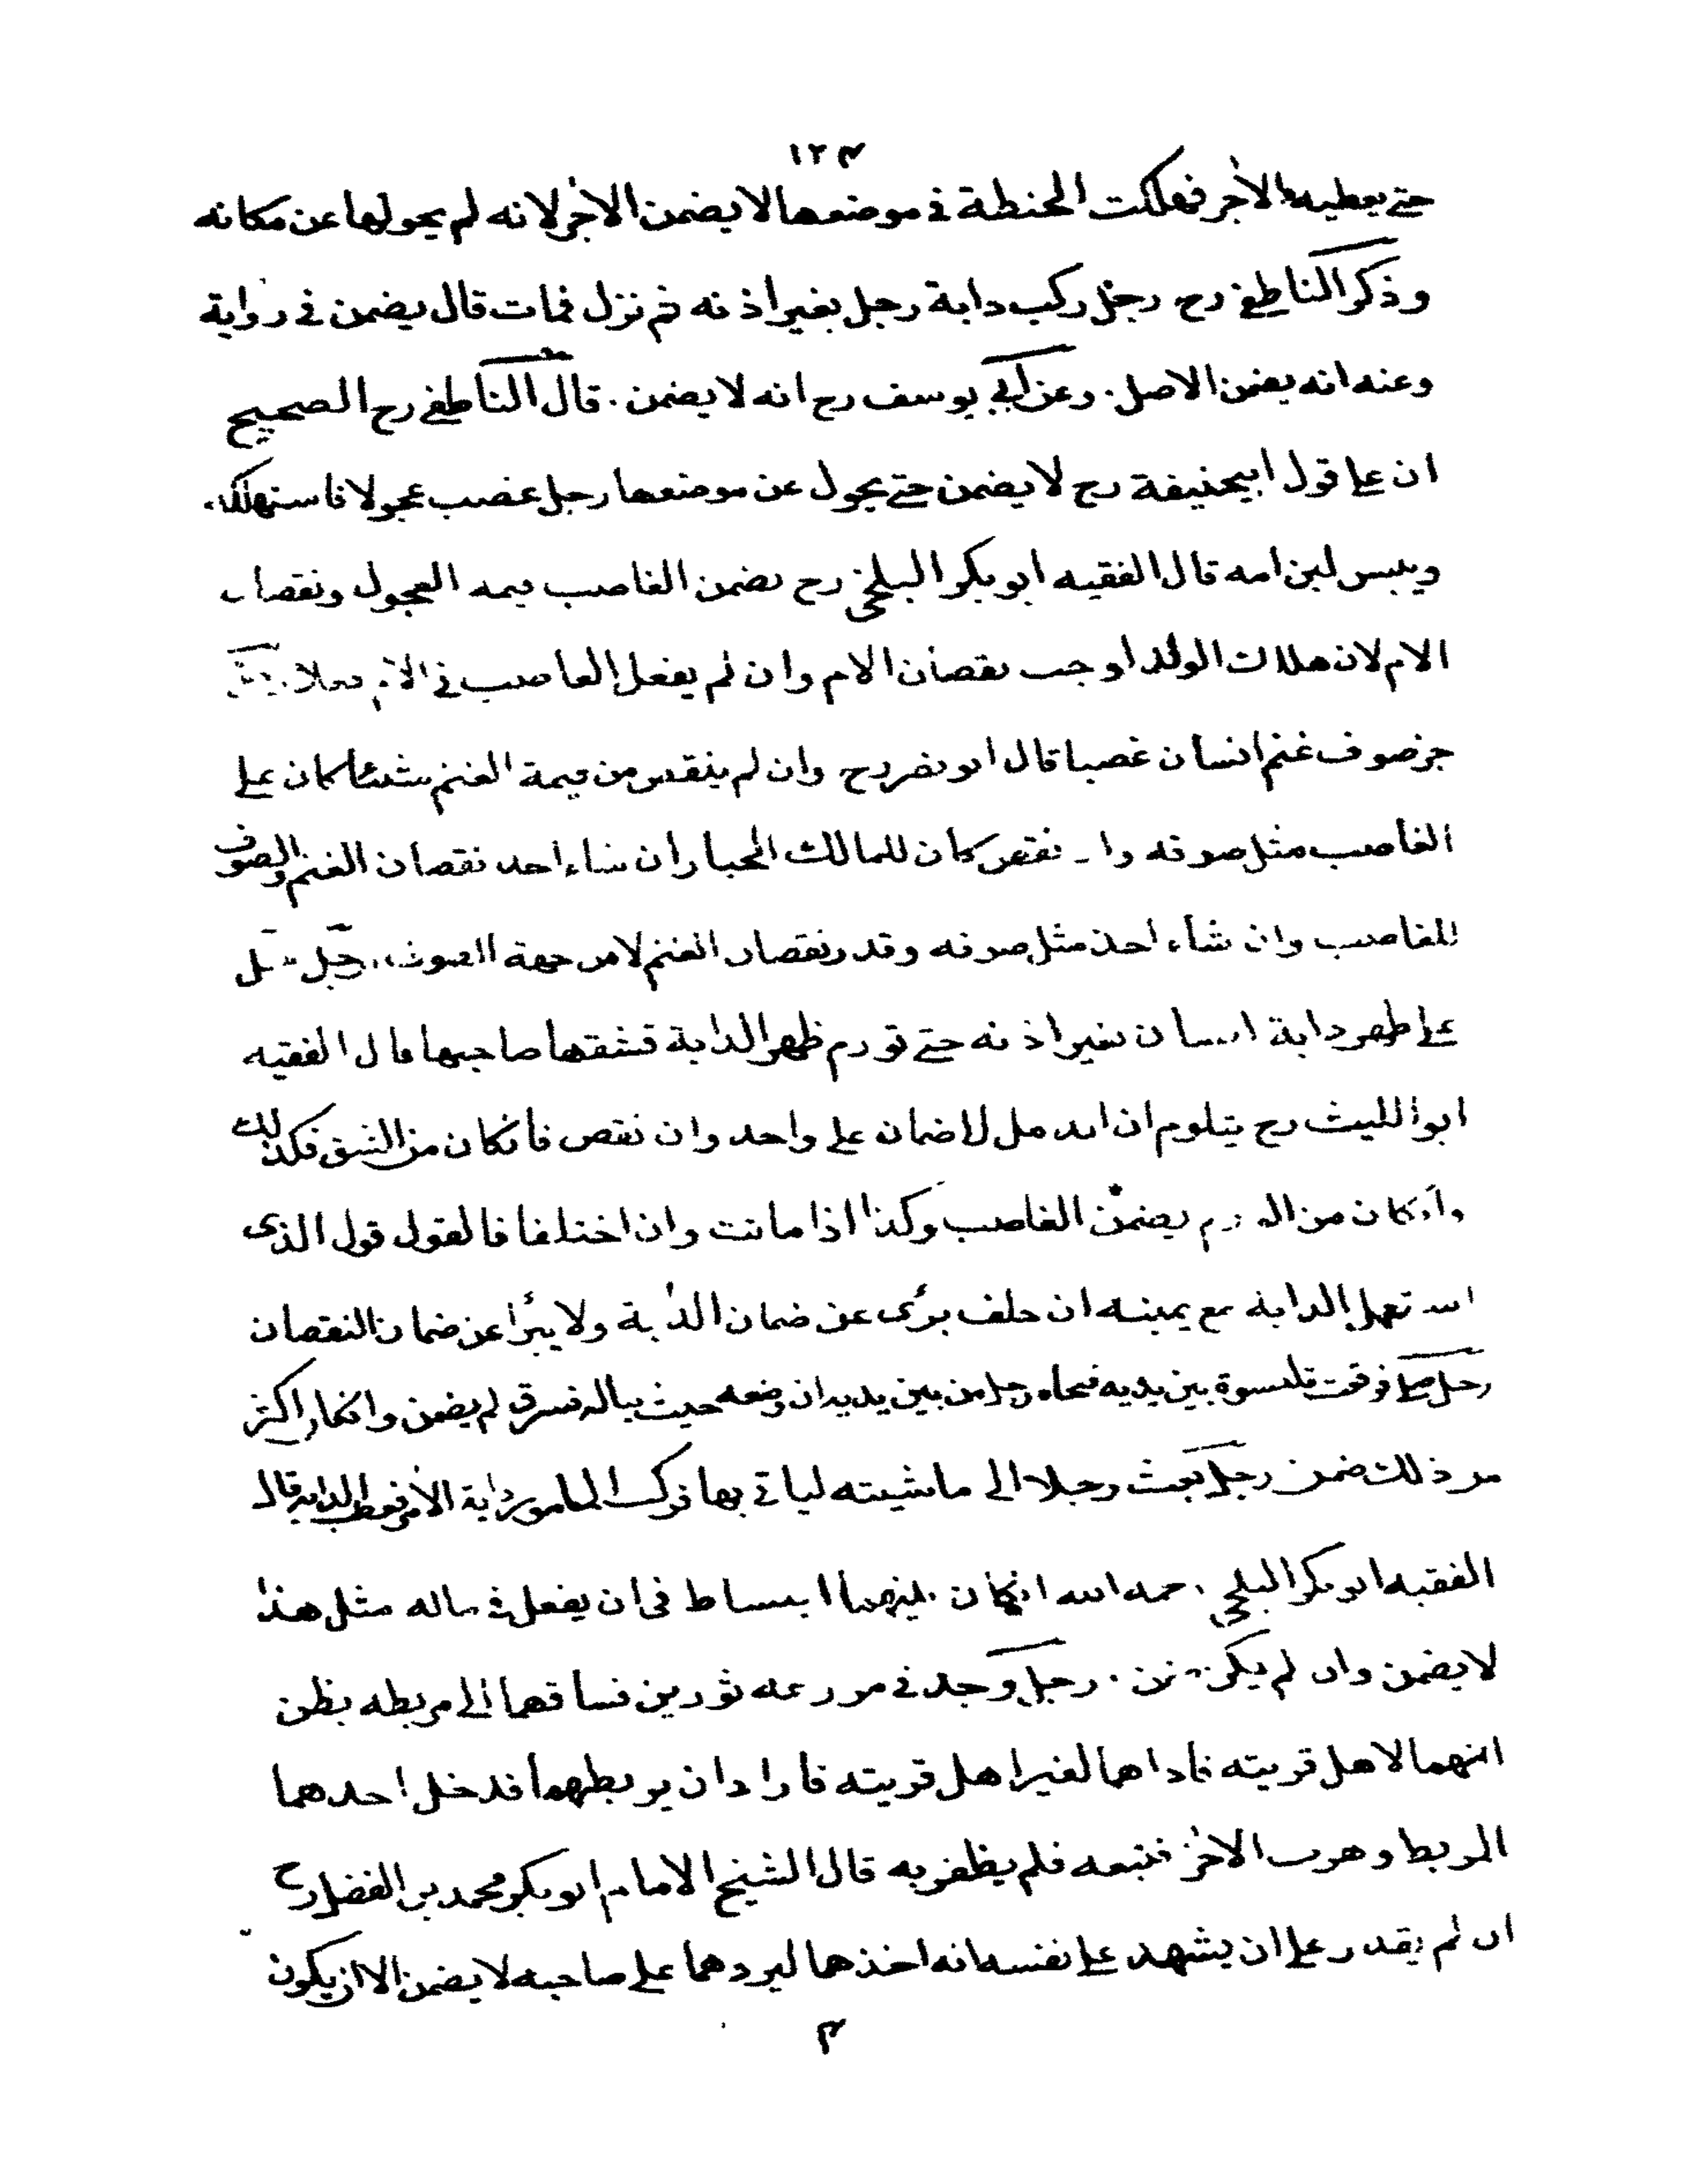 ١٢٤
حتى يعطيه الاجر فهلكت الحنطة فى موضعها لا يضمن الاجر لانه لم يحولها عن مكانه
وذكر الناطفى رح رجل ركب دابة رجل بغير اذنه ثم نزل فمات قال يضمن فى رواية
وعنه انه يضمن الاصل . وعن ابى يوسف رح انه لا يضمن . قال الناطفى رح الصحيح
ان على قول ابيحنيفة رح لا يضمن حتى يحول عن موضعها رجل غصب عجولا فاستهلكه .
ويبس لبن امه قال الفقيه ابو بكر البلخى رح يضمن الغاصب قيمه العجول ونقصان
الام لان هلاك الولد اوجب نقصان الام وان لم يفعل الغاصب فى الام فعلا
جز صوف غنم انسان غصبا قال ابو نصر رح وان لم ينقص من قيمة الغنم شئا كان على
الغاصب مثل صوفه وا نقص كان للمالك الخيار ان شاء اخذ نقصان الغنم والصوف
للغاصب وان شاء اخذ مثل صوفه وقدر نقصان الغنم لا من جهة الصوف
على ظهر دابة انسان بغير اذنه حتى تورم ظهر الدابة فشقها صاحبها قال الفقيه
ابوا الليث رح يتلوم ان اندمل لا ضمان على واحد وان نقص فانكان من الشق فكذلك
وانكان من الورم يضمن الغاصب وكذا اذا ماتت وان اختلفا فالقول قول الذى
استعمل الدابة مع يمينه ان حلف برئ عن ضمان الدابة ولا يبرأ عن ضمان النقصان
رجل صلى فوقعت قلنسوة بين يديه فنحاه رجل من بين يديه ان وضعه حيث يناله فسرق لم يضمن وانكان اكثر
من ذلك ضمن رجل بعث رجلا الى ماشيته لياتى بها فركب المامور دابة الامر فعطب الدابة قال
الفقيه ابو بكر البلخى رحمه الله انكان بينهما انبساط فى ان يفعل فى ماله مثل هذا
لا يضمن وان لم يكن ضمن . رجل وجد فى مزرعته ثورين فساقهما الى مربطه يظن
انهما لاهل قريته فاذا هما لغير اهل قريته فاراد ان يربطهما فدخل احدهما
المربط وهرب الاخر فتبعه فلم يظفر به قال الشيخ الامام ابو بكر محمد بن الفضل رح
ان لم يقدر على ان يشهد على نفسه انه اخذهما ليردهما على صاحبه لا يضمن الا ان يكون